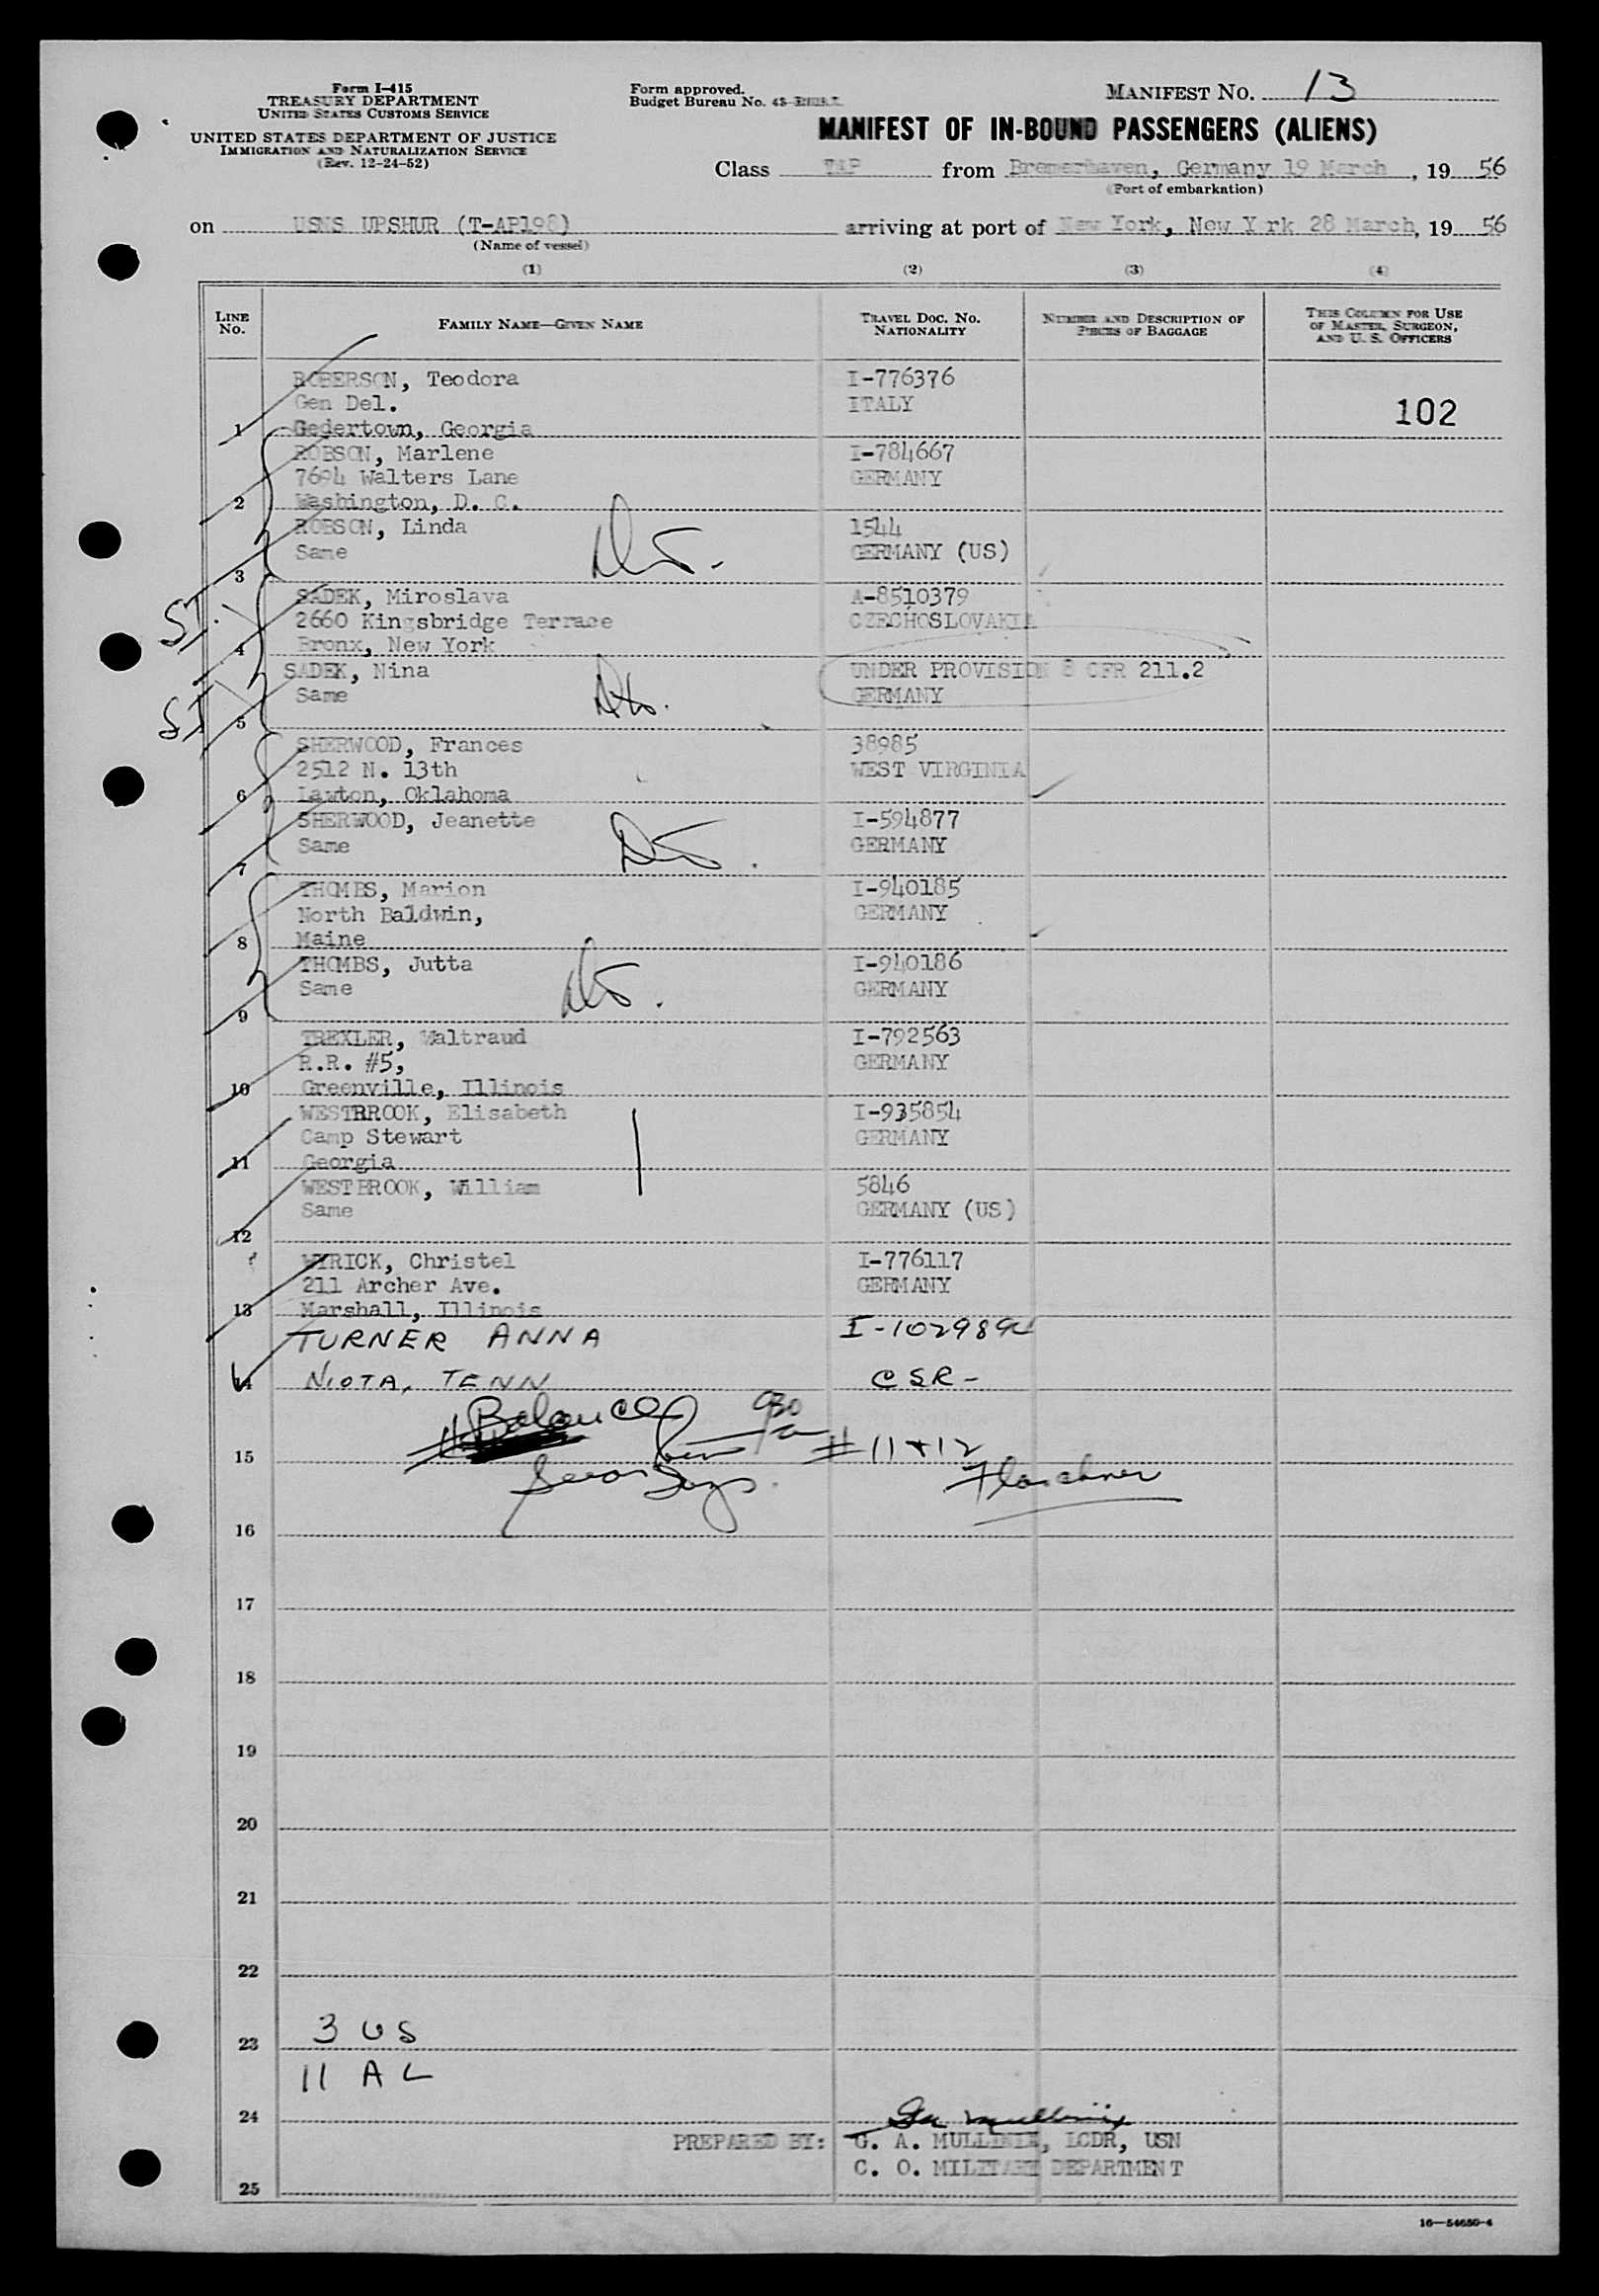 Form I-415
TREASURY DEPARTMENT
UNITED STATES CUSTOMS SERVICE
UNITED STATES DEPARTMENT OF JUSTICE
IMMIGRATION AND NATURALIZATION SERVICE
(Rev. 12-24-52)
Form approved.
Budget Bureau No. 43-
MANIFEST No. 13
MANIFEST OF IN-BOUND PASSENGERS (ALIENS)
Class TAP from Bremerhaven, Germany 19 March, 19 56
(Port of embarkation)
on USNS UPSHUR (T-AP198) arriving at port of New York, New Y rk 28 March, 19 56
(Name of vessel)
(1) (2) (3) (4)
LINE No. FAMILY NAME—GIVEN NAME TRAVEL DOC. No. NATIONALITY NUMBER AND DESCRIPTION OF PIECES OF BAGGAGE THIS COLUMN FOR USE OF MASTER, SURGEON, AND U. S. OFFICERS
ROBERSON, Teodora I-776376
Gen Del. ITALY 102
1 Gedertown, Georgia
ROBSON, Marlene I-784667
7694 Walters Lane GERMANY
2 Washington, D. C.
ROBSON, Linda 1544
Same GERMANY (US)
3
SADEK, Miroslava A-8510379
ST. 2660 Kingsbridge Terrace CZECHOSLOVAKIA
4 Bronx, New York
SADEK, Nina UNDER PROVISION 8 CFR 211.2
Same GERMANY
ST 5
SHERWOOD, Frances 38985
2512 N. 13th WEST VIRGINIA
6 Lawton, Oklahoma
SHERWOOD, Jeanette I-594877
Same GERMANY
7
THOMBS, Marion I-940185
North Baldwin, GERMANY
8 Maine
THOMBS, Jutta I-940186
Same GERMANY
9
TREXLER, Waltraud I-792563
R.R. #5, GERMANY
10 Greenville, Illinois
WESTBROOK, Elisabeth I-935854
Camp Stewart GERMANY
11 Georgia
WESTBROOK, William 5846
Same GERMANY (US)
12
WYRICK, Christel I-776117
211 Archer Ave. GERMANY
13 Marshall, Illinois
TURNER ANNA
14 NIOTA, TENN CSR-
Balance
15 # 11 + 12
16
17
18
19
20
21
22
3 US
23
11 AL
24
PREPARED BY: G. A. MULLINIX, LCDR, USN
C. O. MILITARY DEPARTMENT
25
16—54650-4